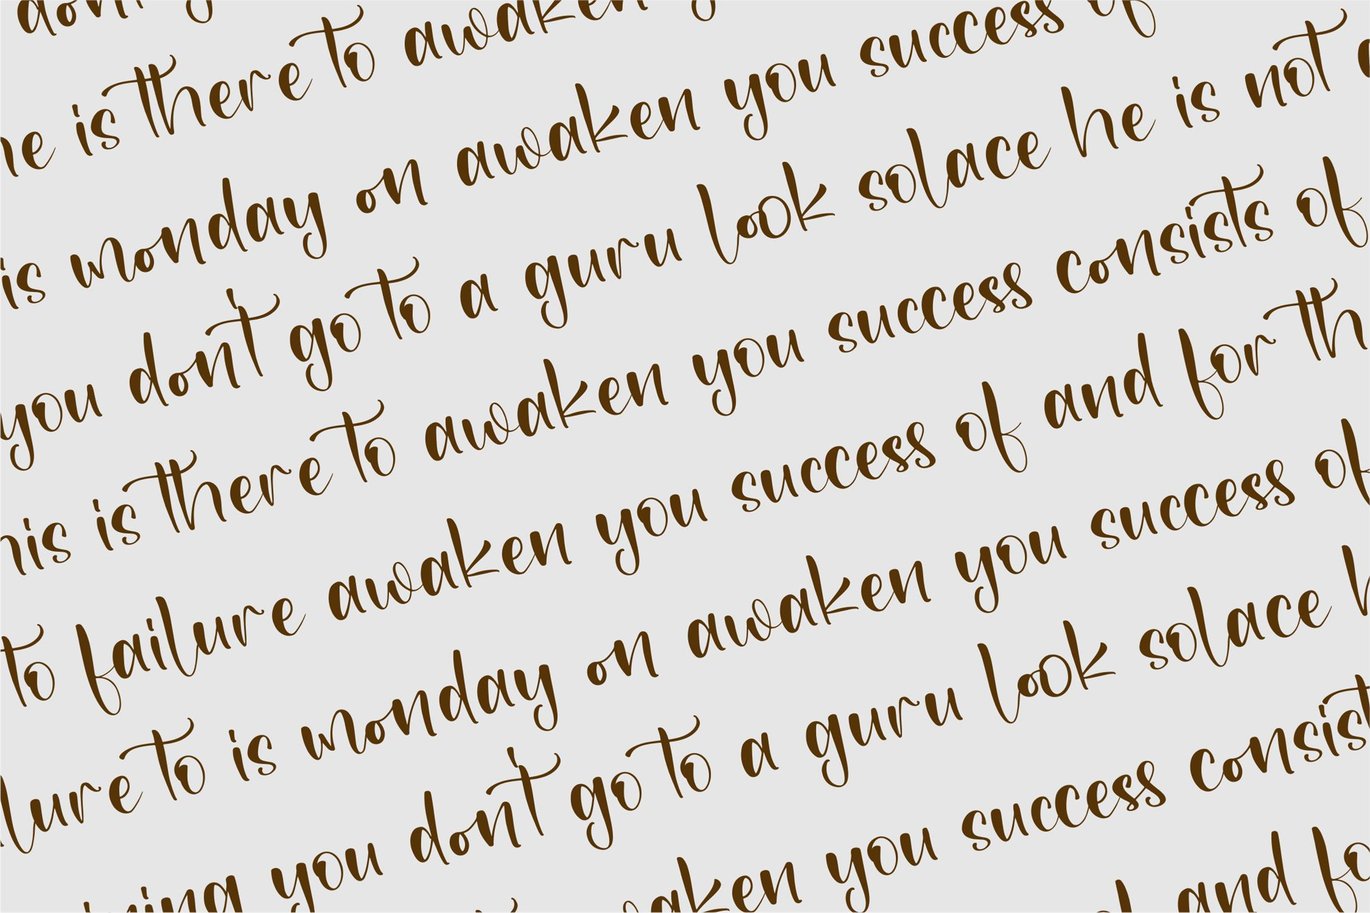 don't
he is there to awaken
is monday on awaken you success of
you don't go to a guru look solace he is not
his is there to awaken you success consists of
to failure awaken you success of and for th
lure to is monday on awaken you success of
ning you don't go to a guru look solace
awaken you success consist
and fo